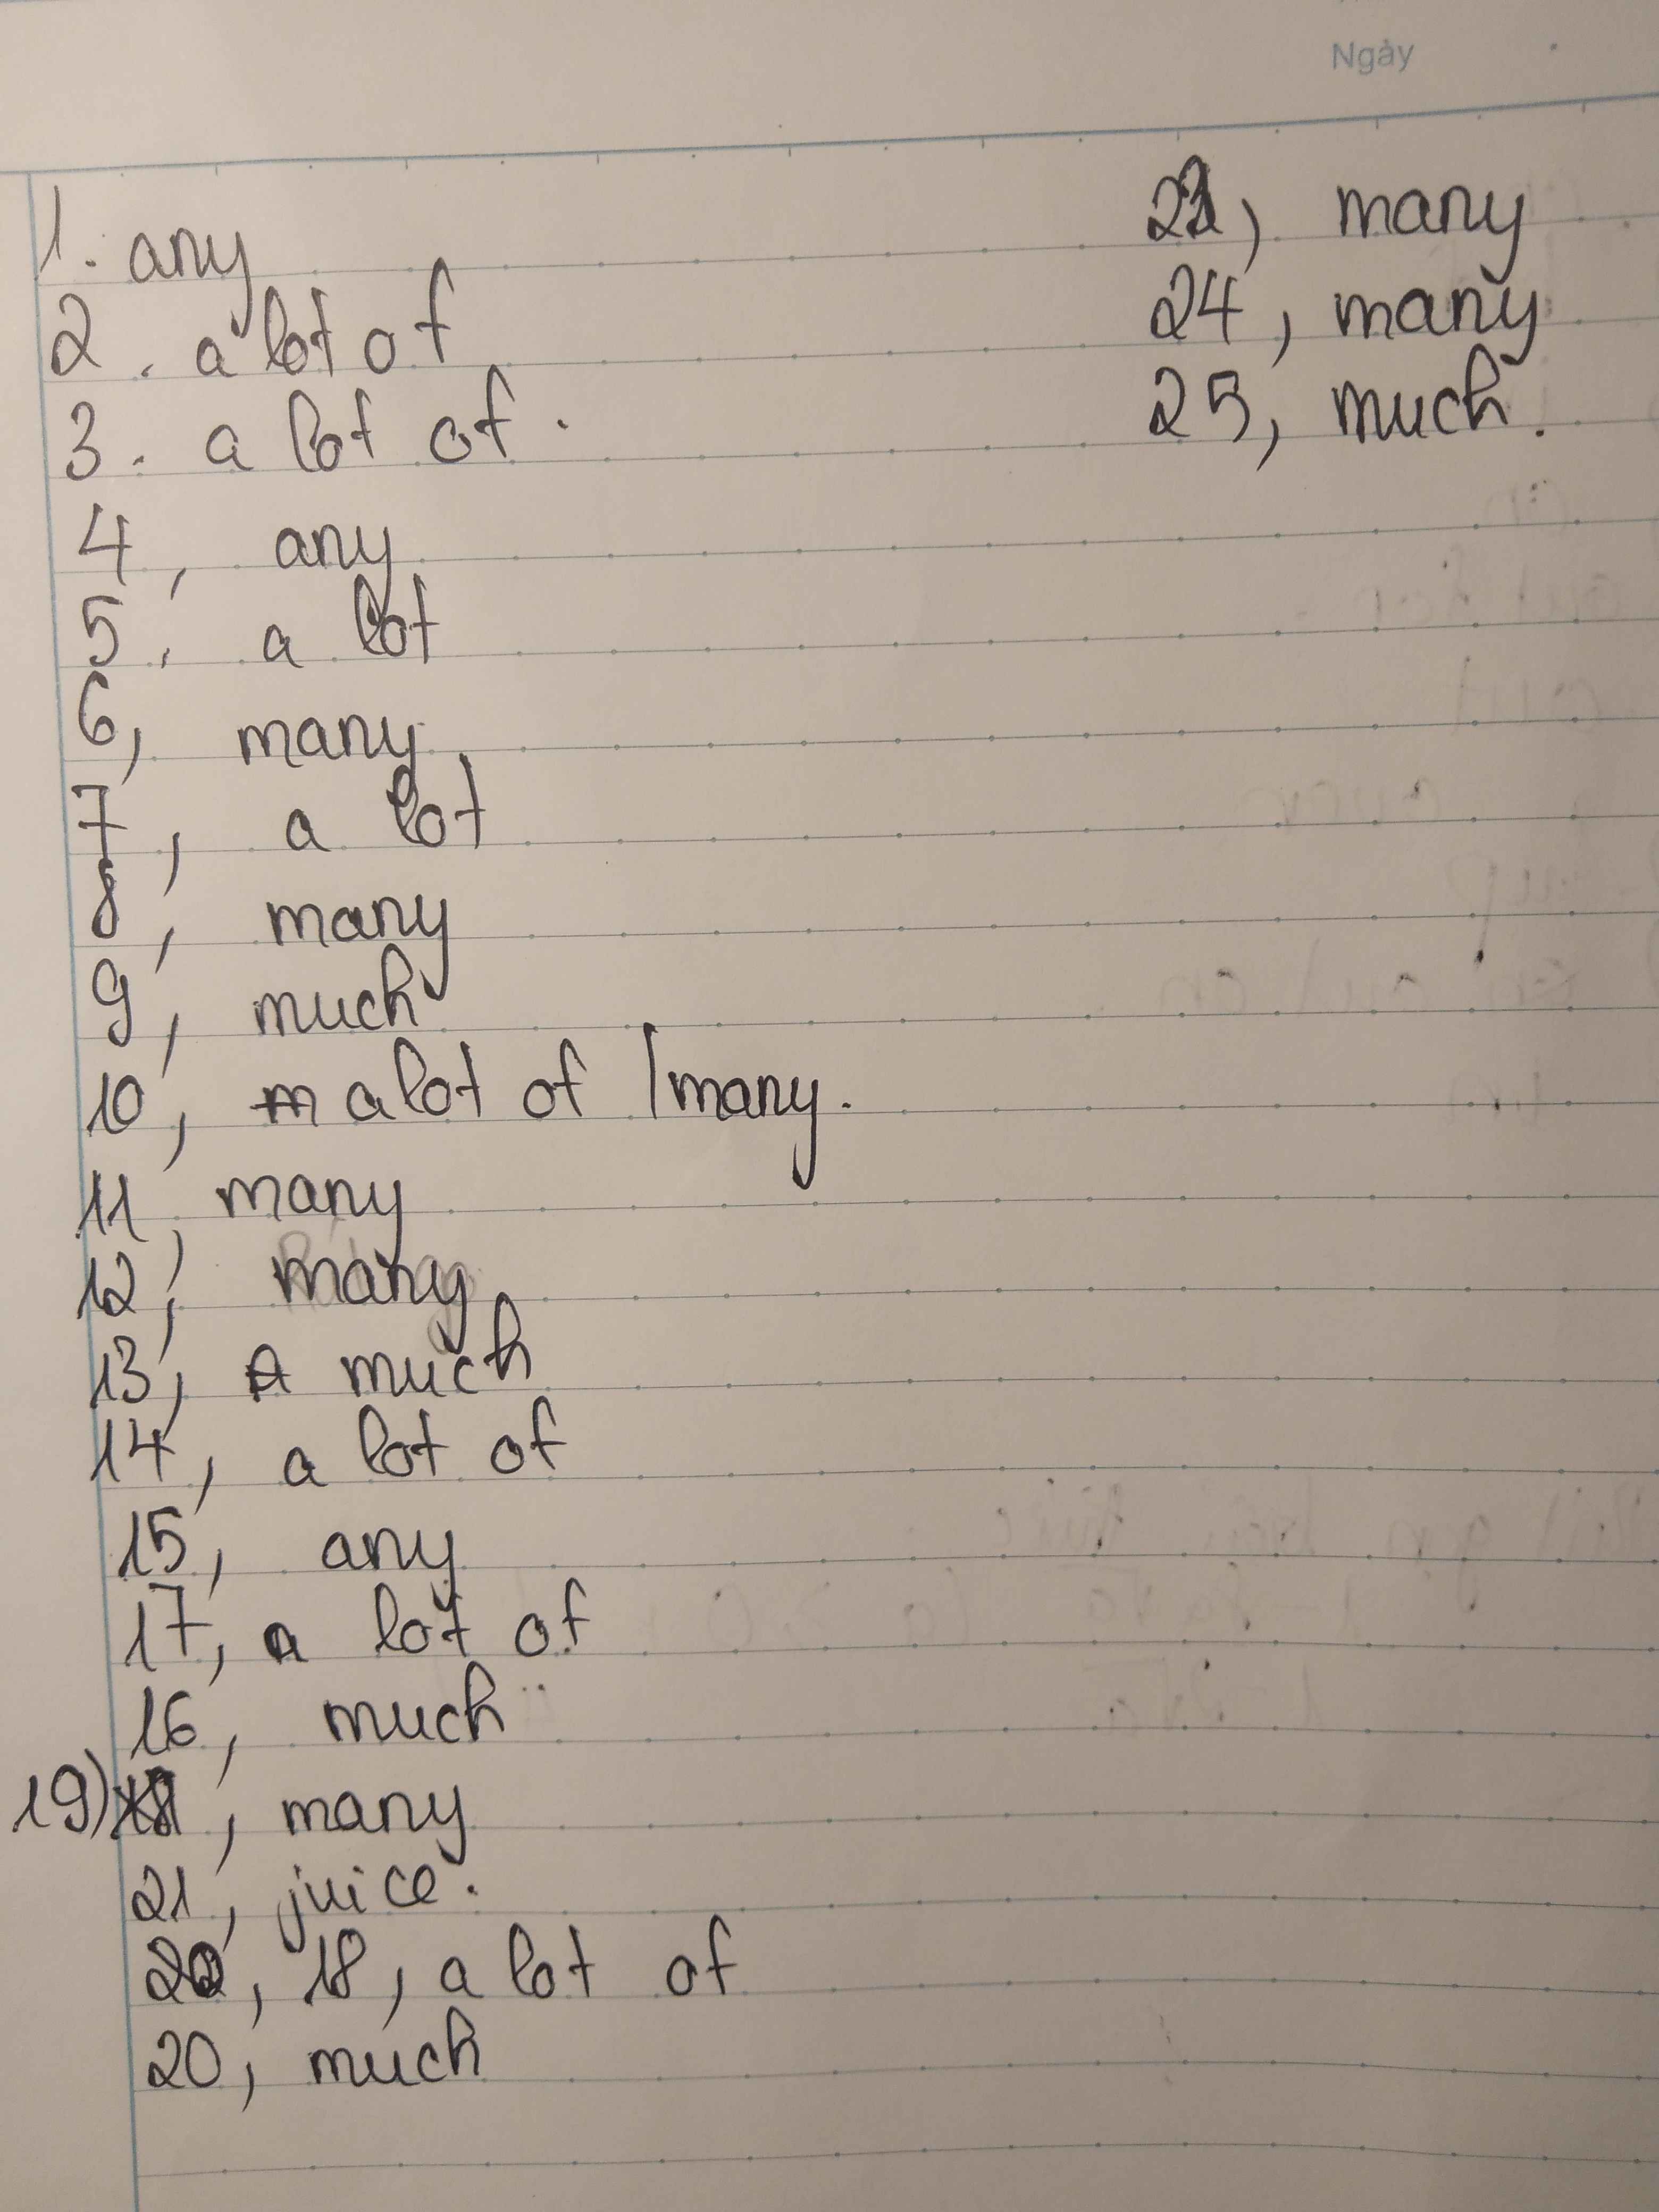 Ngày
1. any
2. a lot of
3. a lot of.
4, any
5, a lot
6, many
7, a lot
8, many
9, much
10, a lot of / many.
11, many
12, many
13, much
14, a lot of
15, any
17, a lot of
16, much
19) , many
21, juice.
18, a lot of
20, much
, many
24, many
25, much.